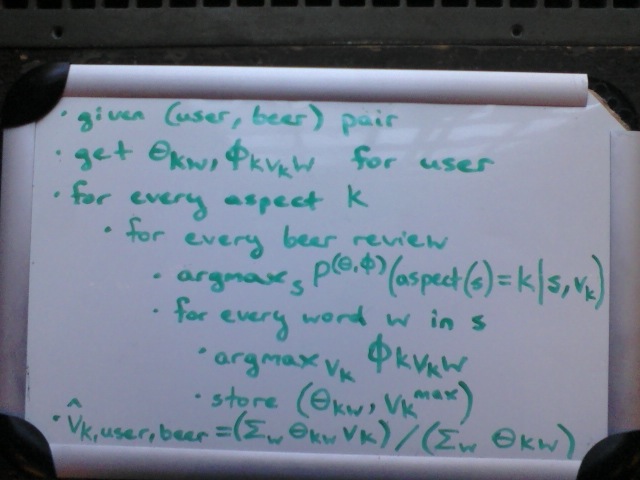 · given (user, beer) pair
· get θ_kw, ϕ_kv_kw for user
· for every aspect k
· for every beer review
· argmax_s P^(θ,ϕ)(aspect(s)=k|s,v_k)
· for every word w in s
· argmax_v_k ϕ_kv_kw
· store (θ_kw, v_k^max)
· v̂_k,user,beer = (Σ_w θ_kw v_k) / (Σ_w θ_kw)